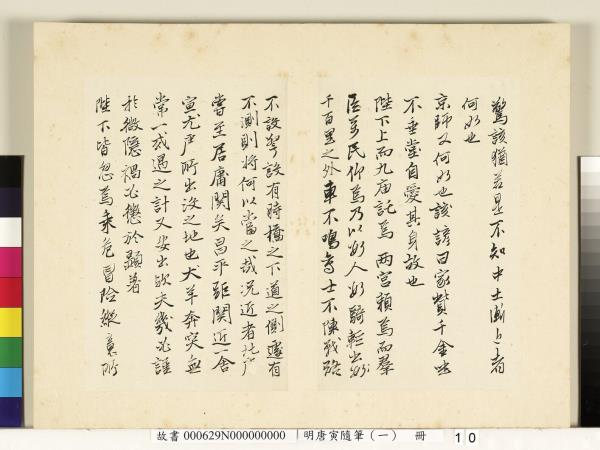 驚該猶若是不知中土
者
何如也
京師又何如也該諺曰家貲千金坐
不垂堂自愛其身故也
陛下上而九廟託焉兩宮賴焉而羣
臣萬民仰焉乃以數人數騎輕出數
千百里之外車不鳴鸞士不陳戟路
不設警設有時橋之下道之側遽有
不測則將何以當之哉況近者
嘗至居庸關矣昌平距關近一舍
實尤虜所出沒之地也犬羊奔突無
常一或遇之計又安出欤夫幾必謹
於微隱禍必懲於顯著
陛下皆忽焉乘危冒險縱意所
故書 000629N000000000 明唐寅隨筆(一) 冊 10